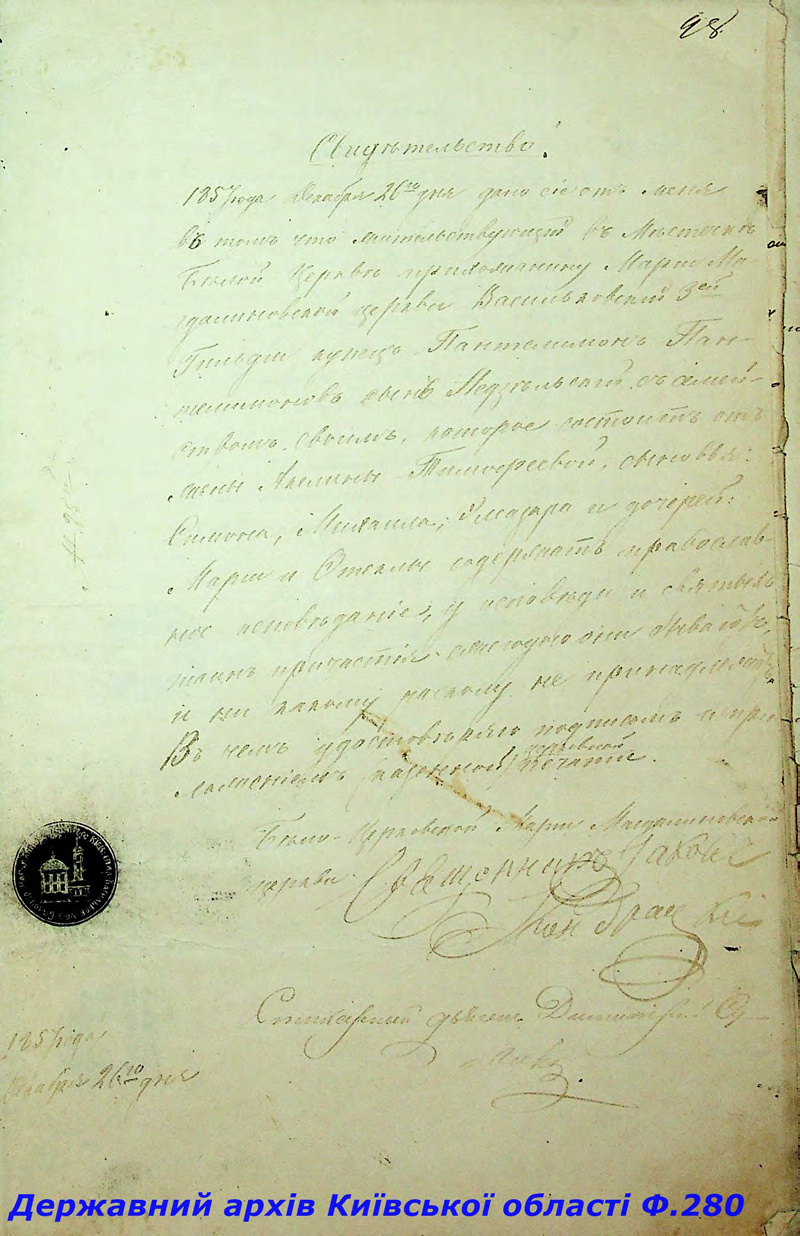 98.
Свидѣтельство!
1857 года Декабря 26го дня дано сіе отъ меня
въ томъ что жительствующій въ Мѣстечкѣ
Бѣлой Церквѣ прихожанину Маріи Ма-
гдалиновской церкви Васильковскій 3ей
Гильдіи купецъ Пантелимонъ Пан-
телимоновъ сынъ съ семей-
ствомъ своимъ, которое состоитъ отъ
жены Тимофеевой, сыновья:
Симона, Михаила, и дочерей:
Маріи и Феклы содержатъ православ-
ное исповѣданіе, у исповѣди и святыхъ
таинъ причастія ежегодно они
и ни какому расколу не принадлежатъ.
Въ чемъ удостовѣряю подписомъ и при
ложеніемъ (казенной) церковной печати.
Бѣло-Церковской Маріи Магдалиновской
церкви Священникъ Іаковъ
1857 года
Декабря 26го дня
Державний архів Київської області Ф.280